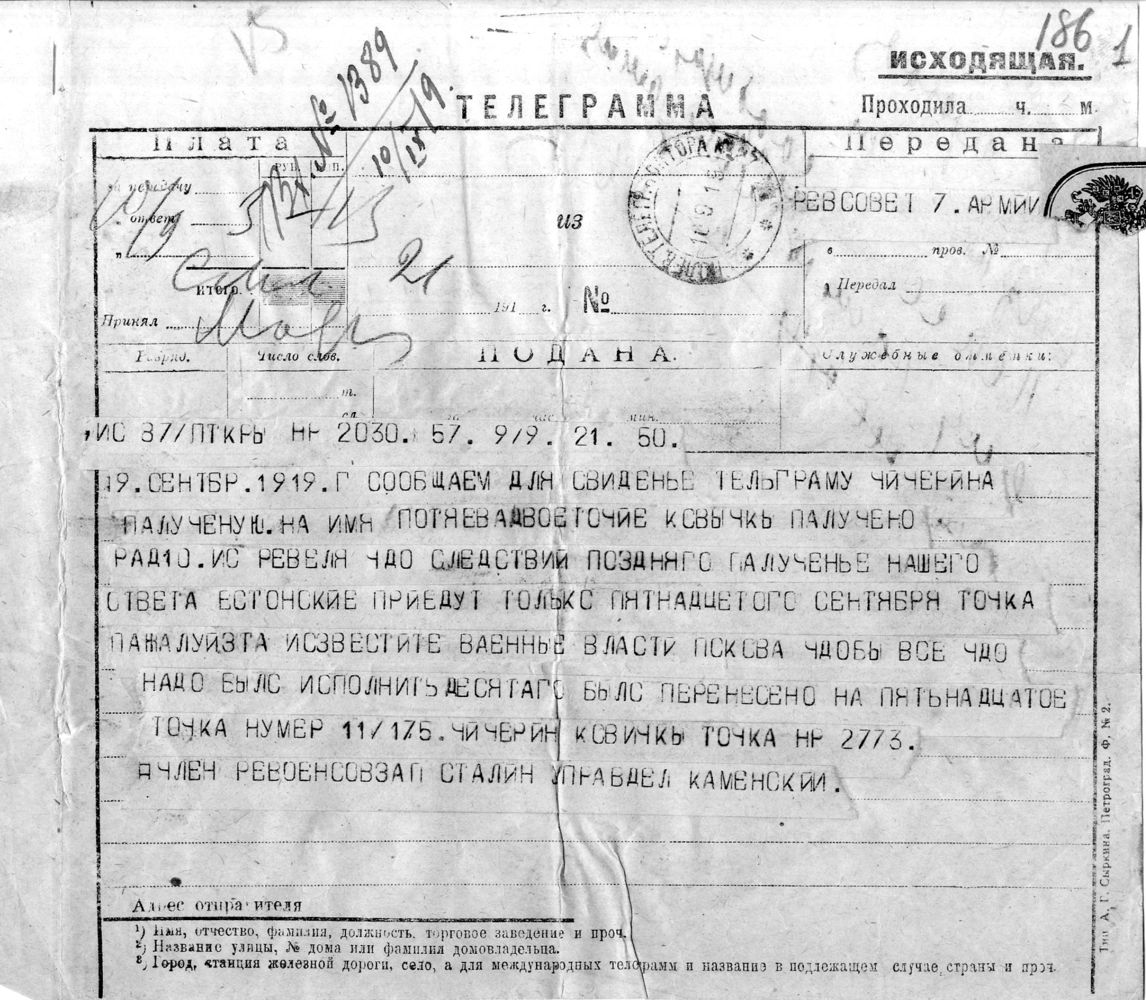 186
1
ИСХОДЯЩАЯ.
ТЕЛЕГРАММА
Проходила ч. м.
№ 1389
10/IX 19.
Плата
Передана
РУБ. КОП.
За передачу
ответ
РЕВСОВЕТ 7. АРМИИ
из
в пров. №
21
ИТОГО.
191 г. №
Передал
Принял
Разряд.
Число слов.
ПОДАНА.
Служебные отмѣтки:
т.
сл.
час. мин.
ИС 37/ПТКРЬ НР 2030. 57. 9/9. 21. 50.
19. СЕНТБР. 1919. Г СООБЩАЕМ ДЛЯ СВИДЕНЬЕ ТЕЛЬГРАМУ ЧИЧЕРИНА
ПАЛУЧЕНУЮ. НА ИМЯ ПОТЯЕВАДВОЕТОЧИЕ КОВЫЧКЬ ПАЛУЧЕНО
РАД10. ИС РЕВЕЛЯ ЧДО СЛЕДСТВИЙ ПОЗДНЯГО ПАЛУЧЕНЬЕ НАШЕГО
ОТВЕТА ЕСТОНСКИЕ ПРИЕДУТ ТОЛЬКО ПЯТНАДЦЕТОГО СЕНТЯБРЯ ТОЧКА
ПАЖАЛУЙЗТА ИСЗВЕСТИТЕ ВАЕННЫЕ ВЛАСТИ ПСКОВА ЧДОБЬ ВСЕ ЧДО
НАДО БЫЛО ИСПОЛНИТЬ ДЕСЯТАГО БЫЛО ПЕРЕНЕСЕНО НА ПЯТЬНАДЦАТОЕ
ТОЧКА НУМЕР 11/175. ЧИЧЕРИН КОВИЧКЬ ТОЧКА НР 2773.
ЧЛЕН РЕВОЕНСОВЗАП СТАЛИН УПРАВДЕЛ КАМЕНСКИЙ.
Адрес отправителя
¹) Имя, отчество, фамилия, должность, торговое заведение и проч.
²) Название улицы, № дома или фамилия домовладельца.
³) Город, станция железной дороги, село, а для международных телеграмм и название в подлежащем случае страны и проч.
Тип. А. Г. Сыркина. Петроград. Ф. № 2.